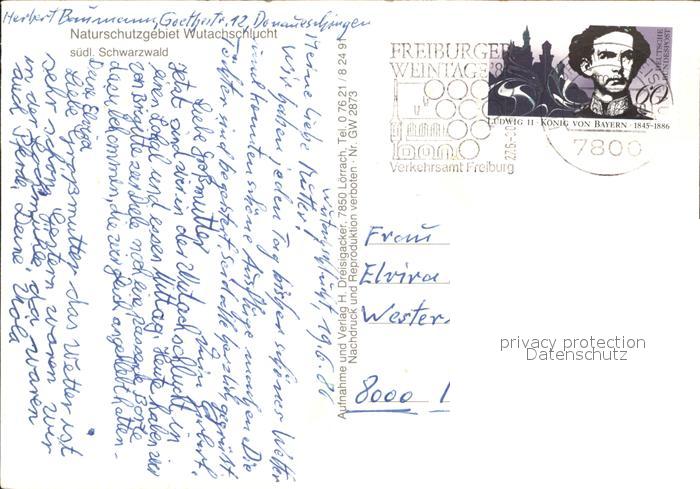 Herbert Baumann, Goethestr. 12, Donaueschingen
Naturschutzgebiet Wutachschlucht
südl. Schwarzwald
Wutachschlucht 19.6.86
Meine liebe Mutter!
Wir haben jeden Tag bisher schönes Wetter
und konnten schöne Ausflüge machen. Die
Töchter sind begeistert. Sei alle herzlich gegrüßt
Liebe Großmutter
Jetzt sind wir in der Wutachschlucht in
einem Lokal und essen Mittag. Heute haben wir
von Brigitte
dazu bekommen, die wir gleich angeklebt hatten.
Deine Elena
Liebe Grossmutter das Wetter ist
sehr schön. Gestern waren wir
in der da waren
auch Pferde, Deine Viola
Aufnahme und Verlag H. Dreisigacker, 7850 Lörrach, Tel. 0 76 21 / 8 24 91
Nachdruck und Reproduktion verboten · Nr. GW 2873
FREIBURGER
WEINTAGE
Verkehrsamt Freiburg
27.6.
7800
DEUTSCHE BUNDESPOST
60
LUDWIG II · KÖNIG VON BAYERN · 1845–1886
Frau
Elvira
Wester
8000
privacy protection
Datenschutz